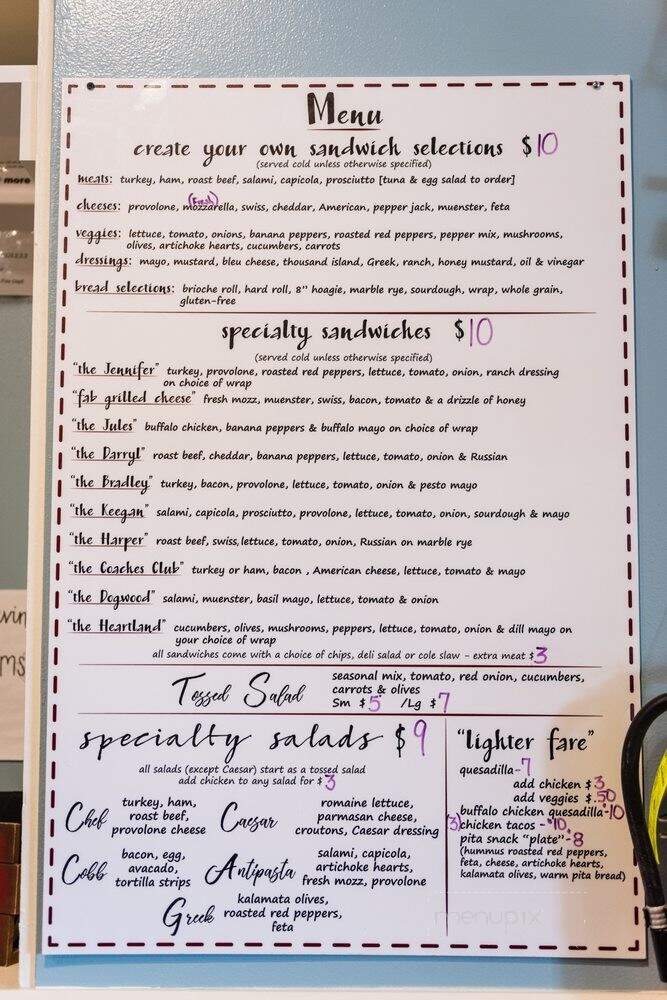 Menu
create your own sandwich selections $10
(served cold unless otherwise specified)
meats: turkey, ham, roast beef, salami, capicola, prosciutto [tuna & egg salad to order]
(Fresh)
cheeses: provolone, mozzarella, swiss, cheddar, American, pepper jack, muenster, feta
veggies: lettuce, tomato, onions, banana peppers, roasted red peppers, pepper mix, mushrooms,
olives, artichoke hearts, cucumbers, carrots
dressings: mayo, mustard, bleu cheese, thousand island, Greek, ranch, honey mustard, oil & vinegar
bread selections: brioche roll, hard roll, 8" hoagie, marble rye, sourdough, wrap, whole grain,
gluten-free
specialty sandwiches $10
(served cold unless otherwise specified)
"the Jennifer" turkey, provolone, roasted red peppers, lettuce, tomato, onion, ranch dressing
on choice of wrap
"fab grilled cheese" fresh mozz, muenster, swiss, bacon, tomato & a drizzle of honey
"the Jules" buffalo chicken, banana peppers & buffalo mayo on choice of wrap
"the Darryl" roast beef, cheddar, banana peppers, lettuce, tomato, onion & Russian
"the Bradley" turkey, bacon, provolone, lettuce, tomato, onion & pesto mayo
"the Keegan" salami, capicola, prosciutto, provolone, lettuce, tomato, onion, sourdough & mayo
"the Harper" roast beef, swiss, lettuce, tomato, onion, Russian on marble rye
"the Coaches Club" turkey or ham, bacon , American cheese, lettuce, tomato & mayo
"the Dogwood" salami, muenster, basil mayo, lettuce, tomato & onion
"the Heartland" cucumbers, olives, mushrooms, peppers, lettuce, tomato, onion & dill mayo on
your choice of wrap
all sandwiches come with a choice of chips, deli salad or cole slaw - extra meat $3
Tossed Salad
seasonal mix, tomato, red onion, cucumbers,
carrots & olives
Sm $5 /Lg $7
specialty salads $9
all salads (except Caesar) start as a tossed salad
add chicken to any salad for $3
Chef
turkey, ham,
roast beef,
provolone cheese
Caesar
romaine lettuce,
parmasan cheese,
croutons, Caesar dressing
Cobb
bacon, egg,
avacado,
tortilla strips
Antipasta
salami, capicola,
artichoke hearts,
fresh mozz, provolone
Greek
kalamata olives,
roasted red peppers,
feta
"lighter fare"
quesadilla-7
add chicken $3
add veggies $.50
buffalo chicken quesadilla-10
(3) chicken tacos - 10
pita snack "plate"-8
(hummus roasted red peppers,
feta, cheese, artichoke hearts,
kalamata olives, warm pita bread)
menupix
more